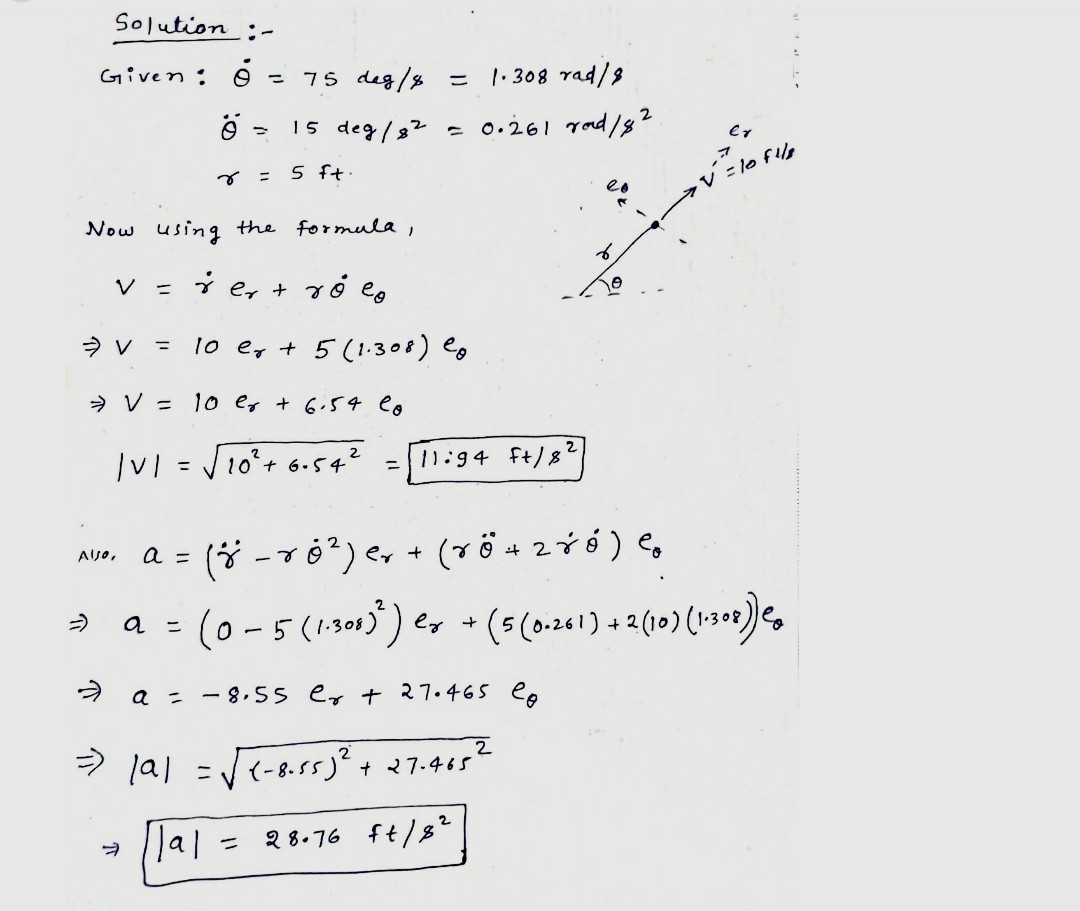 Solution :-
Given : θ̇ = 75 deg/s = 1.308 rad/s
θ̈ = 15 deg/s² = 0.261 rad/s²
r = 5 ft.
er
V = 10 ft/s
eθ
r
θ
Now using the formula,
V = ṙ er + rθ̇ eθ
⇒ V = 10 er + 5 (1.308) eθ
⇒ V = 10 er + 6.54 eθ
|V| = √10² + 6.54² = 11.94 ft/s²
Also, a = (r̈ - rθ̇²) er + (rθ̈ + 2ṙθ̇) eθ
⇒ a = (0 - 5 (1.308)²) er + (5(0.261) + 2(10)(1.308)) eθ
⇒ a = -8.55 er + 27.465 eθ
⇒ |a| = √(-8.55)² + 27.465²
⇒ |a| = 28.76 ft/s²